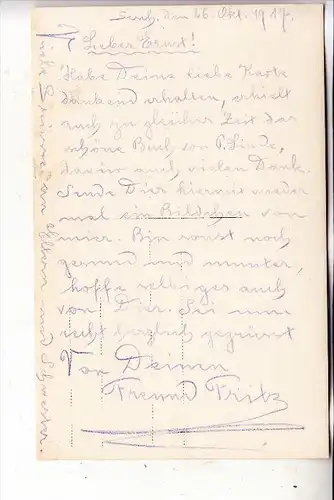 den 26. Okt. 1917.
Lieber Ernst!
Habe Deine liebe Karte
dankend erhalten, erhielt
auch zu gleicher Zeit das
schöne Buch von P. Linde,
davür auch vielen Dank.
Sende Dier hiermit wieder
mal ein Bildchen von
mier. Bin sonst noch
gesund und munter,
hoffe selbiges auch
von Dier. Sei nun
recht herzlich gegrüsst
Von Deinen
Freund Fritz
Viele Grüsse an Eltern und Schwester.